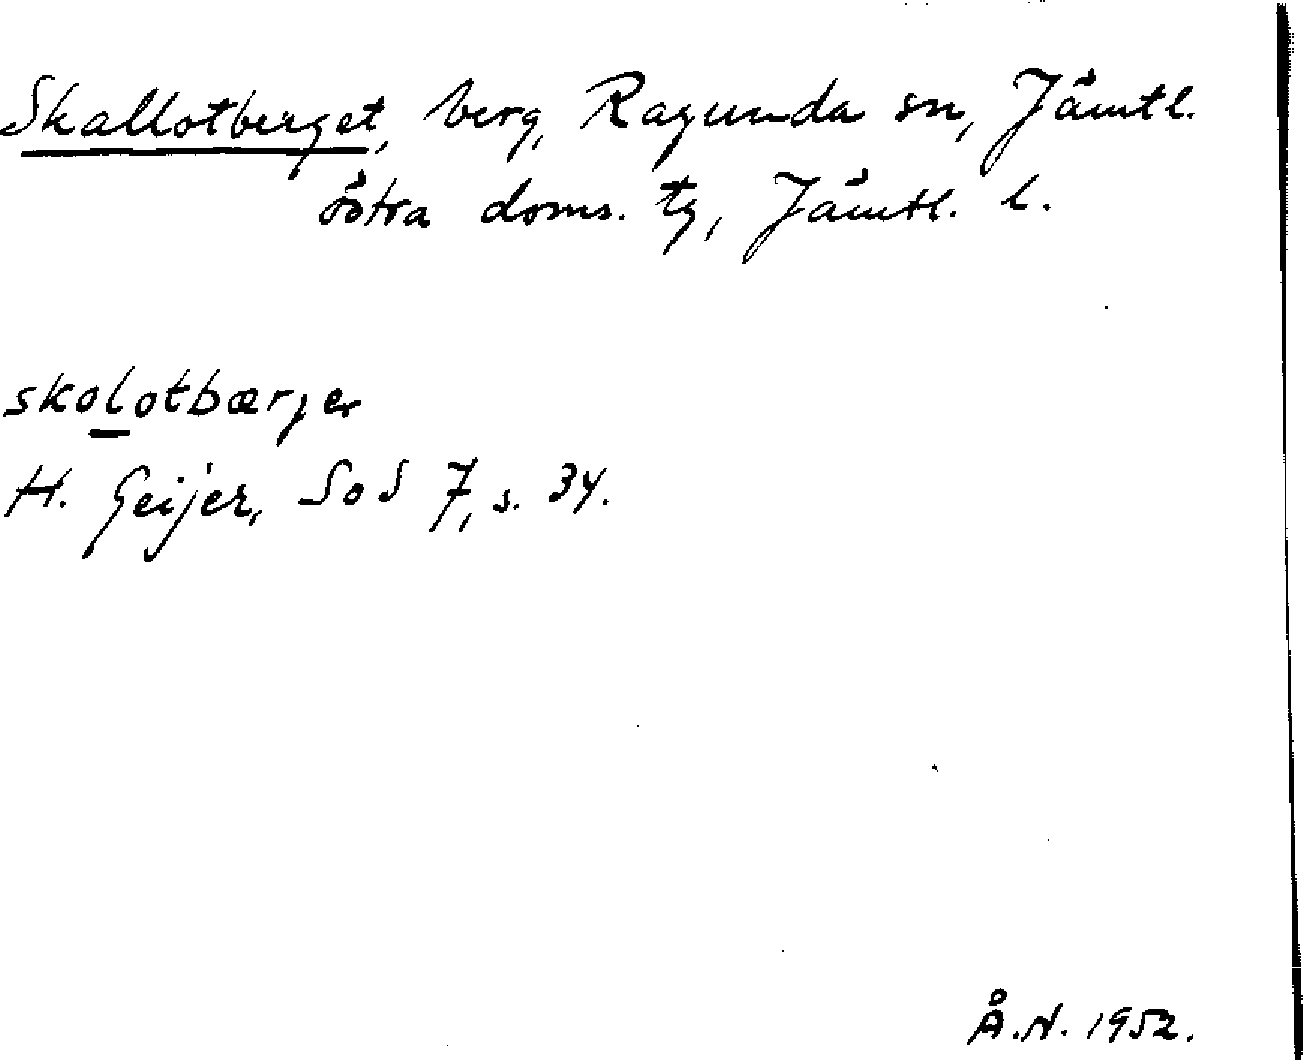 Skallotberget, berg, Ragunda sn, Jämtl.
östra doms. tg, Jämtl. l.
skolotbærjer
H. Geijer, SoS 7, s. 34.
Å.N. 1952.